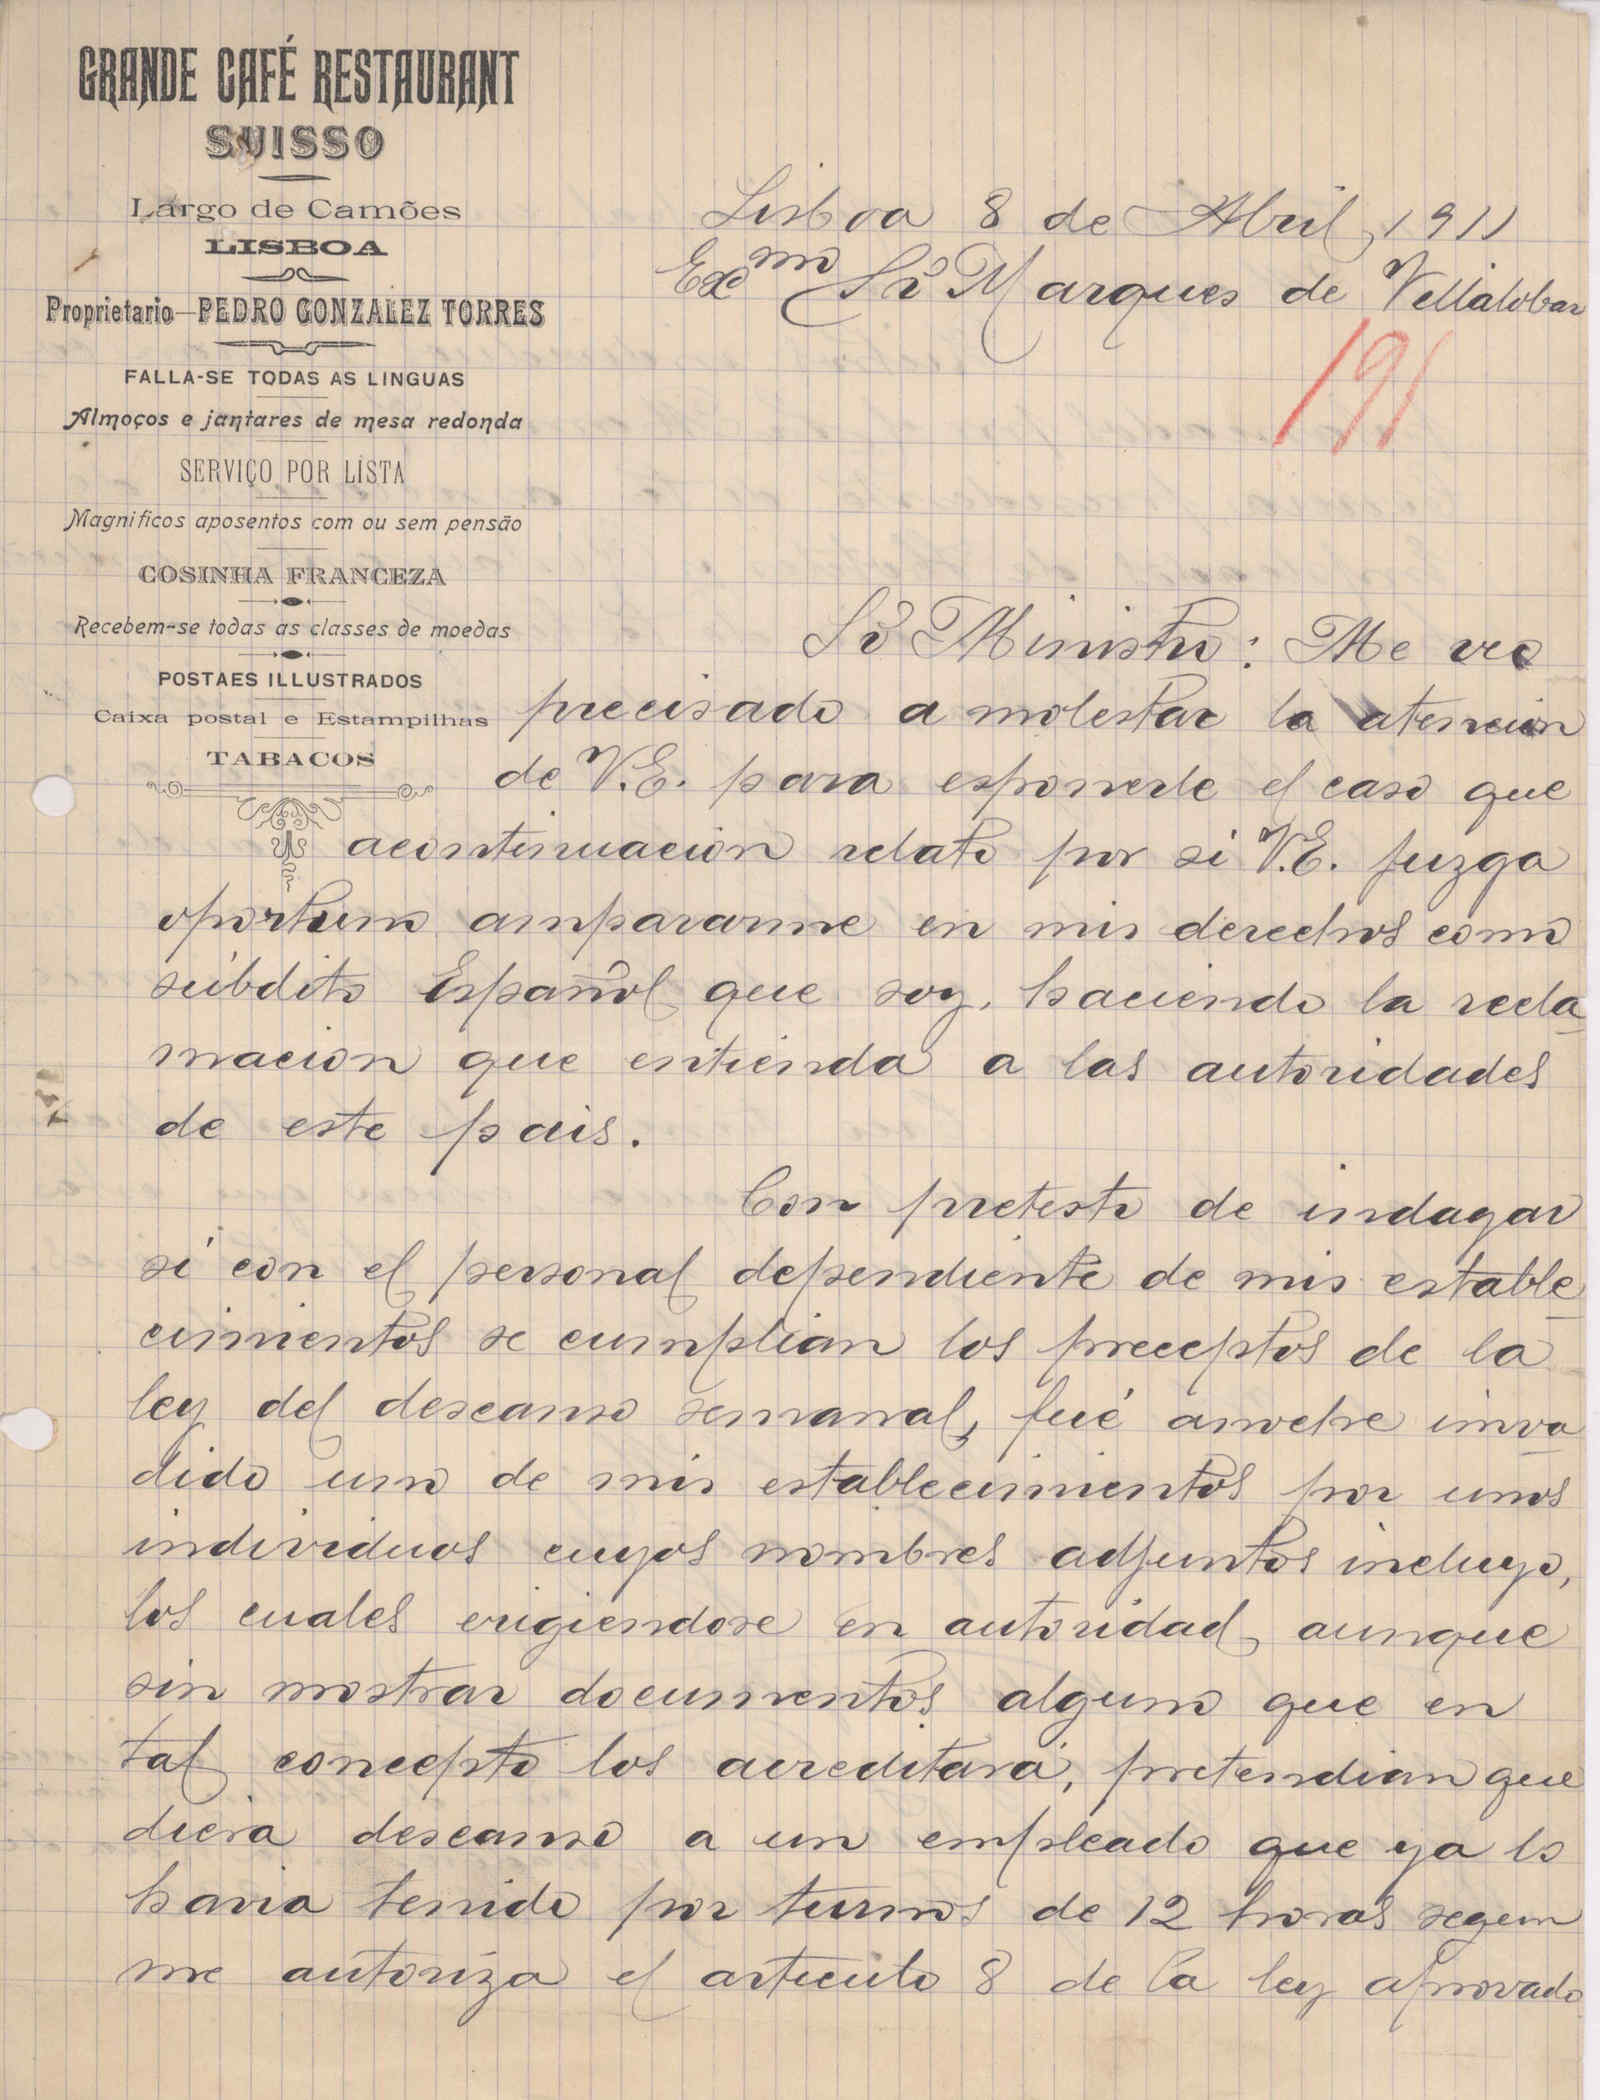 GRANDE CAFÉ RESTAURANT
SUISSO
Largo de Camões
LISBOA
Proprietario—PEDRO GONZALEZ TORRES
FALLA-SE TODAS AS LINGUAS
Almoços e jantares de mesa redonda
SERVIÇO POR LISTA
Magnificos aposentos com ou sem pensão
COSINHA FRANCEZA
Recebem-se todas as classes de moedas
POSTAES ILLUSTRADOS
Caixa postal e Estampilhas
TABACOS
Lisboa 8 de Abril, 1911
Excmo Sr Marques de Villalobar
191
Sr Ministro: Me veo
precisado a molestar la atencion
de V.E. para esponerle el caso que
acontinuacion relato por si V.E. juzga
oportuno ampararme en mis derechos como
súbdito Español que soy, haciendo la recla
macion que entienda a las autoridades
de este pais.
Con pretesto de indagar
si con el personal dependiente de mis estable
cimientos se cumplian los preceptos de la
ley del descanso semanal, fué anoche inva
dido uno de mis establecimientos por unos
individuos cuyos nombres adjuntos incluyo,
los cuales erigiendose en autoridad, aunque
sin mostrar documentos alguno que en
tal concepto los acreditara, pretendian que
diera descanso a un empleado que ya lo
havia tenido por turnos de 12 horas segun
me autoriza el articulo 8 de la ley aprovado